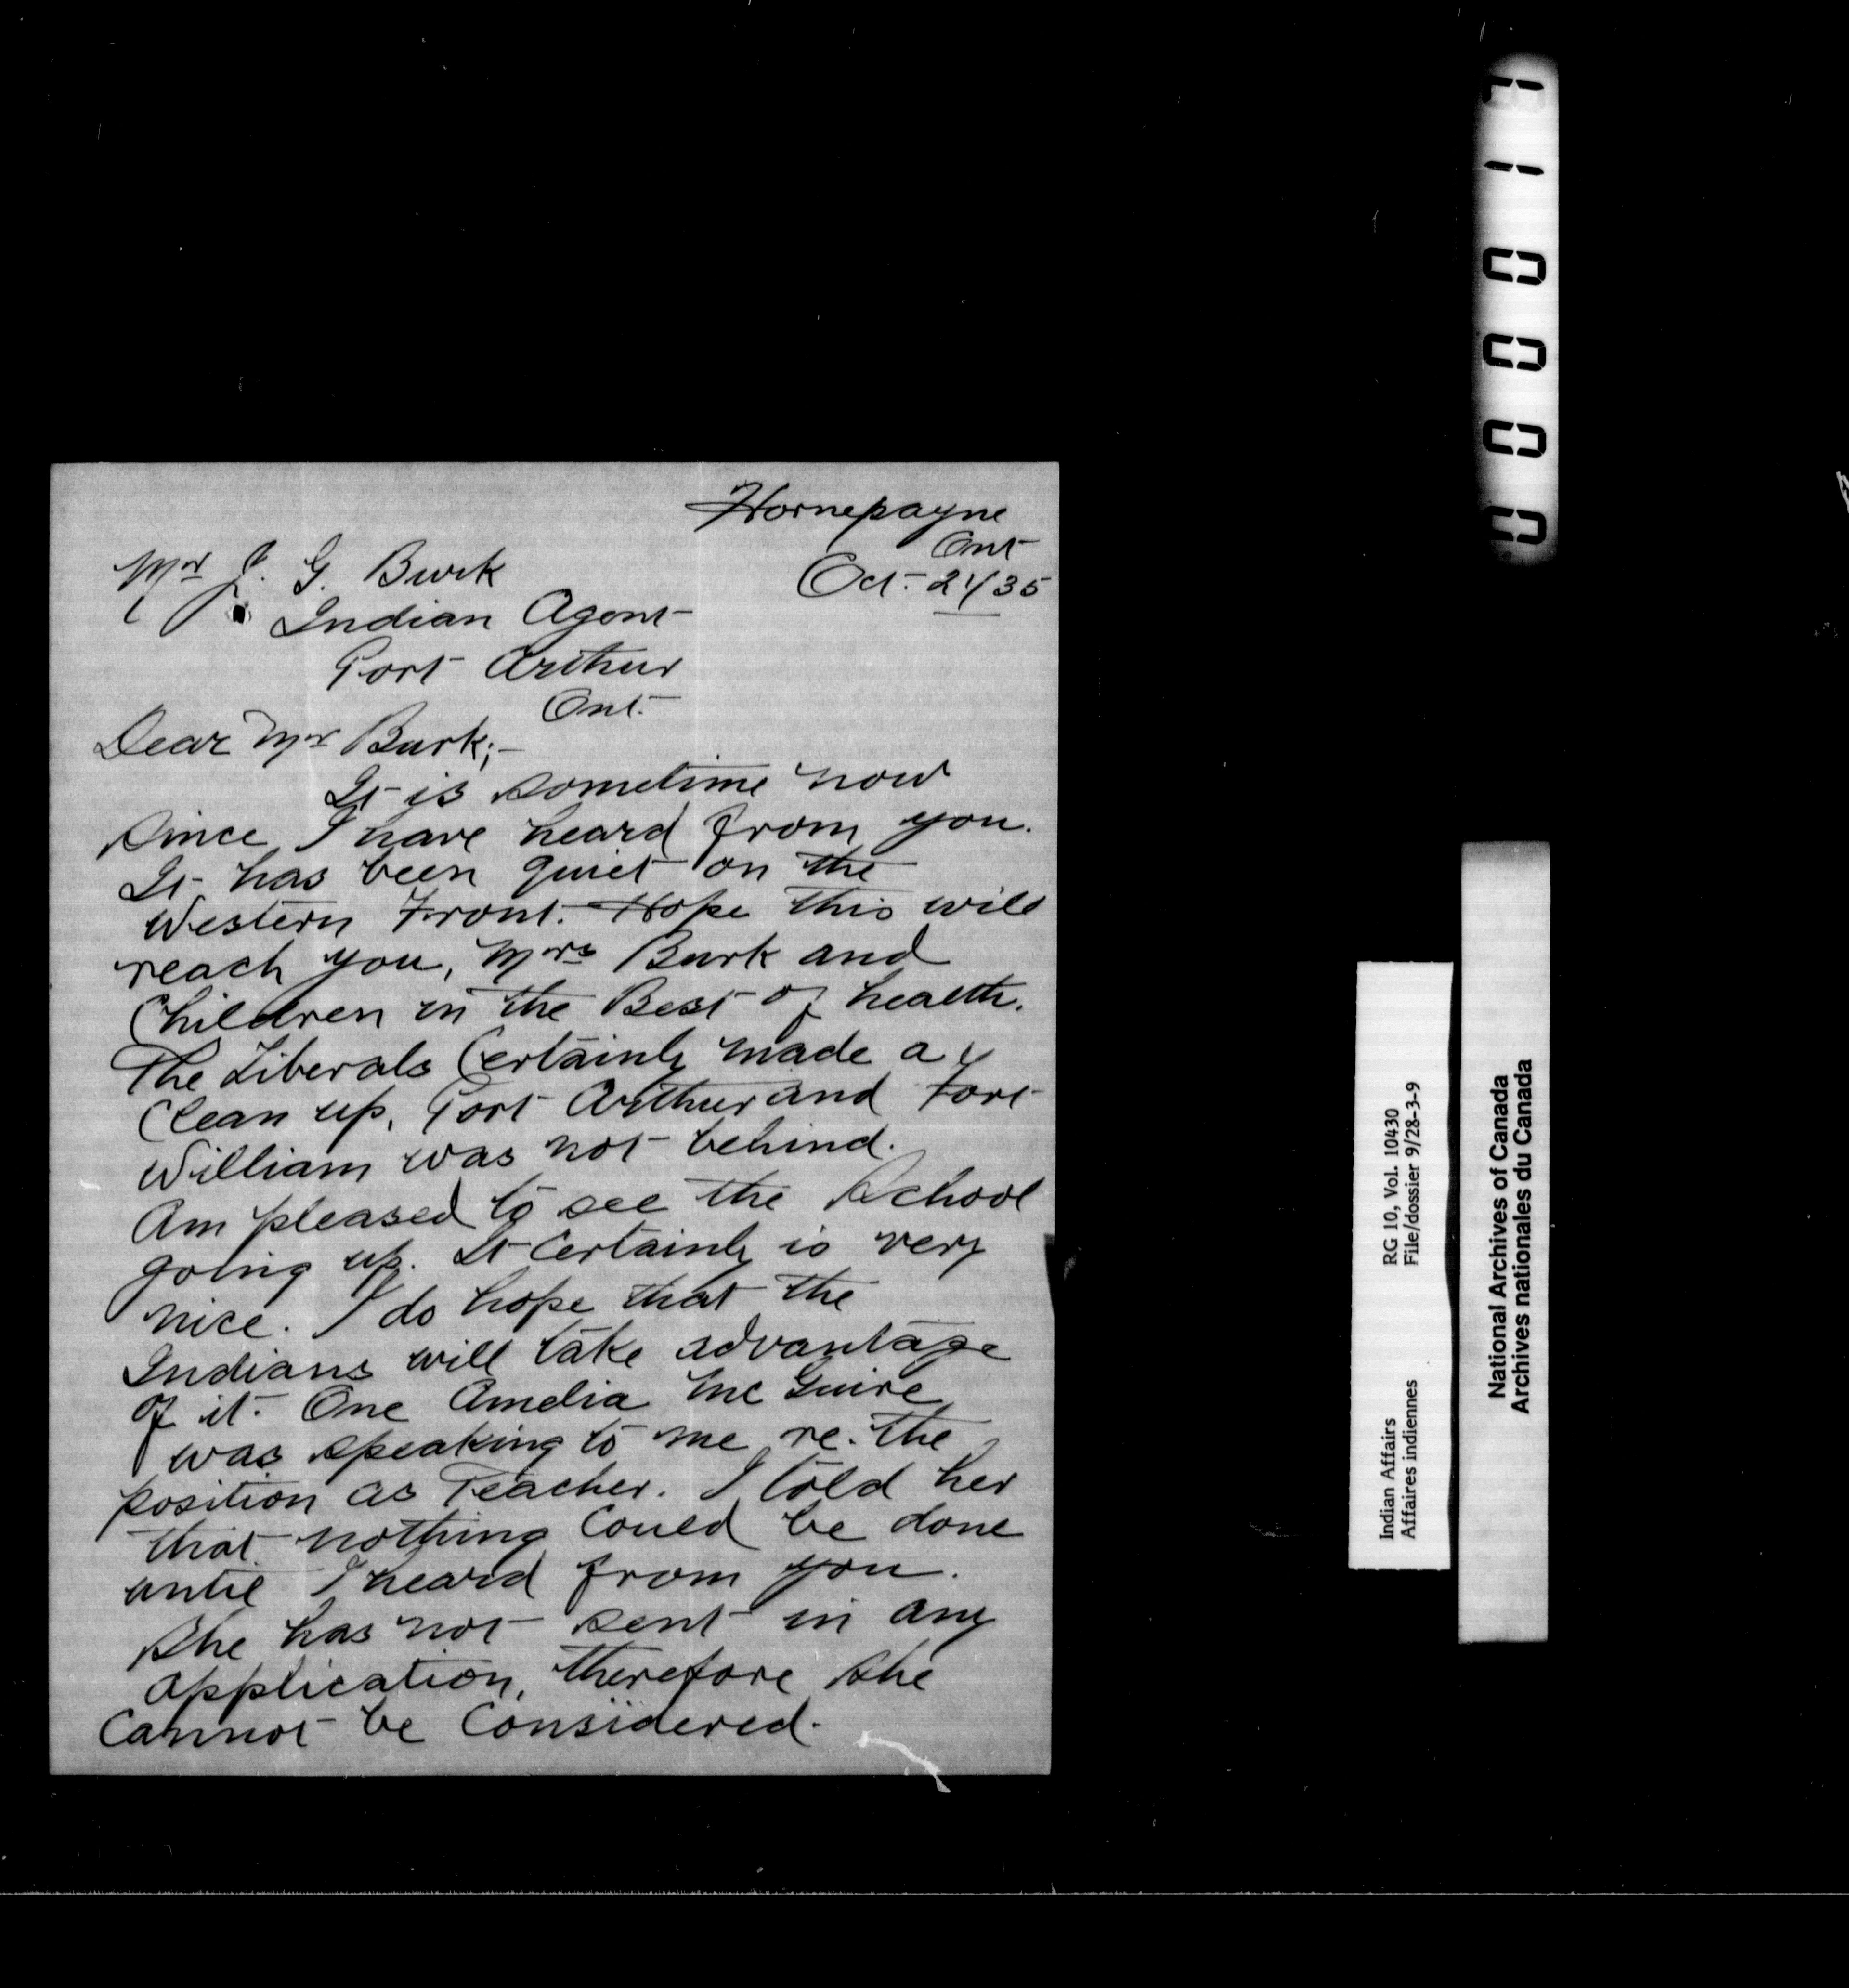 Hornepayne
Ont
Oct. 21/35
Mr J. G. Burk
Indian Agent
Port Arthur
Ont.
Dear Mr Burk;-
It is sometime now
since I have heard from you.
It has been quiet on the
Western Front. Hope this will
reach you, Mrs Burk and
Children in the Best of health.
The Liberals Certainly made a
Clean up. Port Arthur and Fort
William was not behind.
Am pleased to see the School
going up. It Certainly is very
nice. I do hope that the
Indians will take advantage
of it. One Amelia McGuire
was speaking to me re. the
position as Teacher. I told her
that nothing Could be done
until I heard from you.
She has not sent in any
application, therefore she
Cannot be Considered.
Indian Affairs RG 10, Vol. 10430
Affaires indiennes File/dossier 9/28-3-9
National Archives of Canada
Archives nationales du Canada